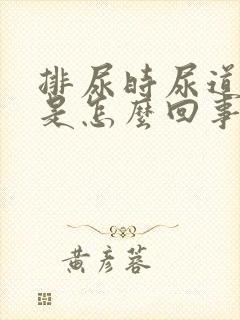 排尿时尿道
是怎麼回事
黄彦蓉